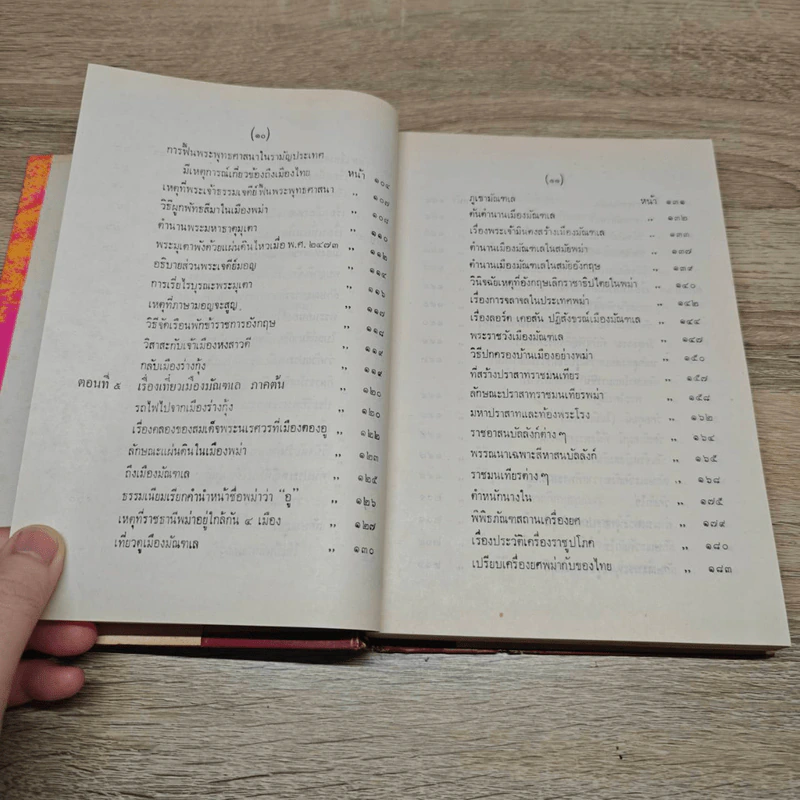 (๑๐)
การฟื้นพระพุทธศาสนาในรามัญประเทศ
มีเหตุการณ์เกี่ยวข้องถึงเมืองไทย หน้า ๑๐๔
เหตุที่พระเจ้าธรรมเจดีย์ฟื้นพระพุทธศาสนา ,, ๑๐๗
วิธีผูกพัทธสีมาในเมืองพม่า ,, ๑๐๘
ตำนานพระมหาธาตุมุเตา ,, ๑๑๐
พระมุเตาพังด้วยแผ่นดินไหวเมื่อ พ.ศ. ๒๔๗๓ ,, ๑๑๒
อธิบายส่วนพระเจดีย์มอญ ,, ๑๑๔
การเรี่ยไรบูรณะพระมุเตา ,, ๑๑๖
เหตุที่ภาษามอญจะสูญ ,, ๑๑๗
วิธีจัดเรือนพักข้าราชการอังกฤษ ,, ๑๑๘
วิสาสะกับเจ้าเมืองหงสาวดี ,, ๑๑๙
กลับเมืองร่างกุ้ง ,, ๑๑๙
ตอนที่ ๕ เรื่องเที่ยวเมืองมัณฑเล ภาคต้น ,, ๑๒๐
รถไฟไปจากเมืองร่างกุ้ง ,, ๑๒๐
เรื่องคลองของสมเด็จพระนเรศวรที่เมืองตองอู ,, ๑๒๒
ลักษณะแผ่นดินในเมืองพม่า ,, ๑๒๓
ถึงเมืองมัณฑเล ,, ๑๒๕
ธรรมเนียมเรียกคำนำหน้าชื่อพม่าว่า “อู” ,, ๑๒๖
เหตุที่ราชธานีพม่าอยู่ใกล้กัน ๔ เมือง ,, ๑๒๗
เที่ยวดูเมืองมัณฑเล ,, ๑๓๐
(๑๑)
ภูเขามัณฑเล หน้า ๑๓๑
ต้นตำนานเมืองมัณฑเล ,, ๑๓๒
เรื่องพระเจ้ามินดงสร้างเมืองมัณฑเล ,, ๑๓๓
ตำนานเมืองมัณฑเลในสมัยพม่า ,, ๑๓๗
ตำนานเมืองมัณฑเลในสมัยอังกฤษ ,, ๑๓๙
วินิจฉัยเหตุที่อังกฤษเลิกราชาธิปไตยในพม่า ,, ๑๔๐
เรื่องการจลาจลในประเทศพม่า ,, ๑๔๒
เรื่องลอร์ด เคอสัน ปฏิสังขรณ์เมืองมัณฑเล ,, ๑๔๔
พระราชวังเมืองมัณฑเล ,, ๑๔๗
วิธีปกครองบ้านเมืองอย่างพม่า ,, ๑๕๐
ที่สร้างปราสาทราชมนเทียร ,, ๑๕๗
ลักษณะปราสาทราชมนเทียรพม่า ,, ๑๕๘
มหาปราสาทและท้องพระโรง ,, ๑๖๒
ราชอาสนบัลลังก์ต่าง ๆ ,, ๑๖๔
พรรณนาเฉพาะสีหาสนบัลลังก์ ,, ๑๖๕
ราชมนเทียรต่าง ๆ ,, ๑๖๘
ตำหนักนางใน ,, ๑๗๕
พิพิธภัณฑสถานเครื่องยศ ,, ๑๗๙
เรื่องประวัติเครื่องราชูปโภค ,, ๑๘๐
เปรียบเครื่องยศพม่ากับของไทย ,, ๑๘๓